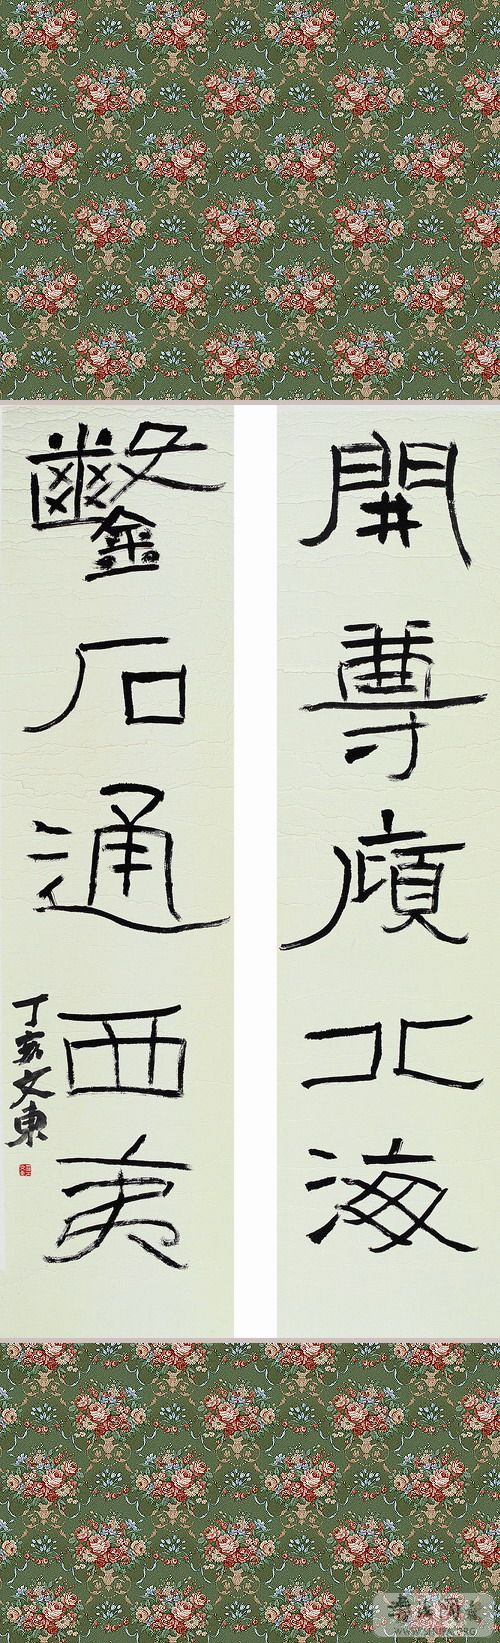 開尊傾北海
鑿石通西夷
丁亥文東